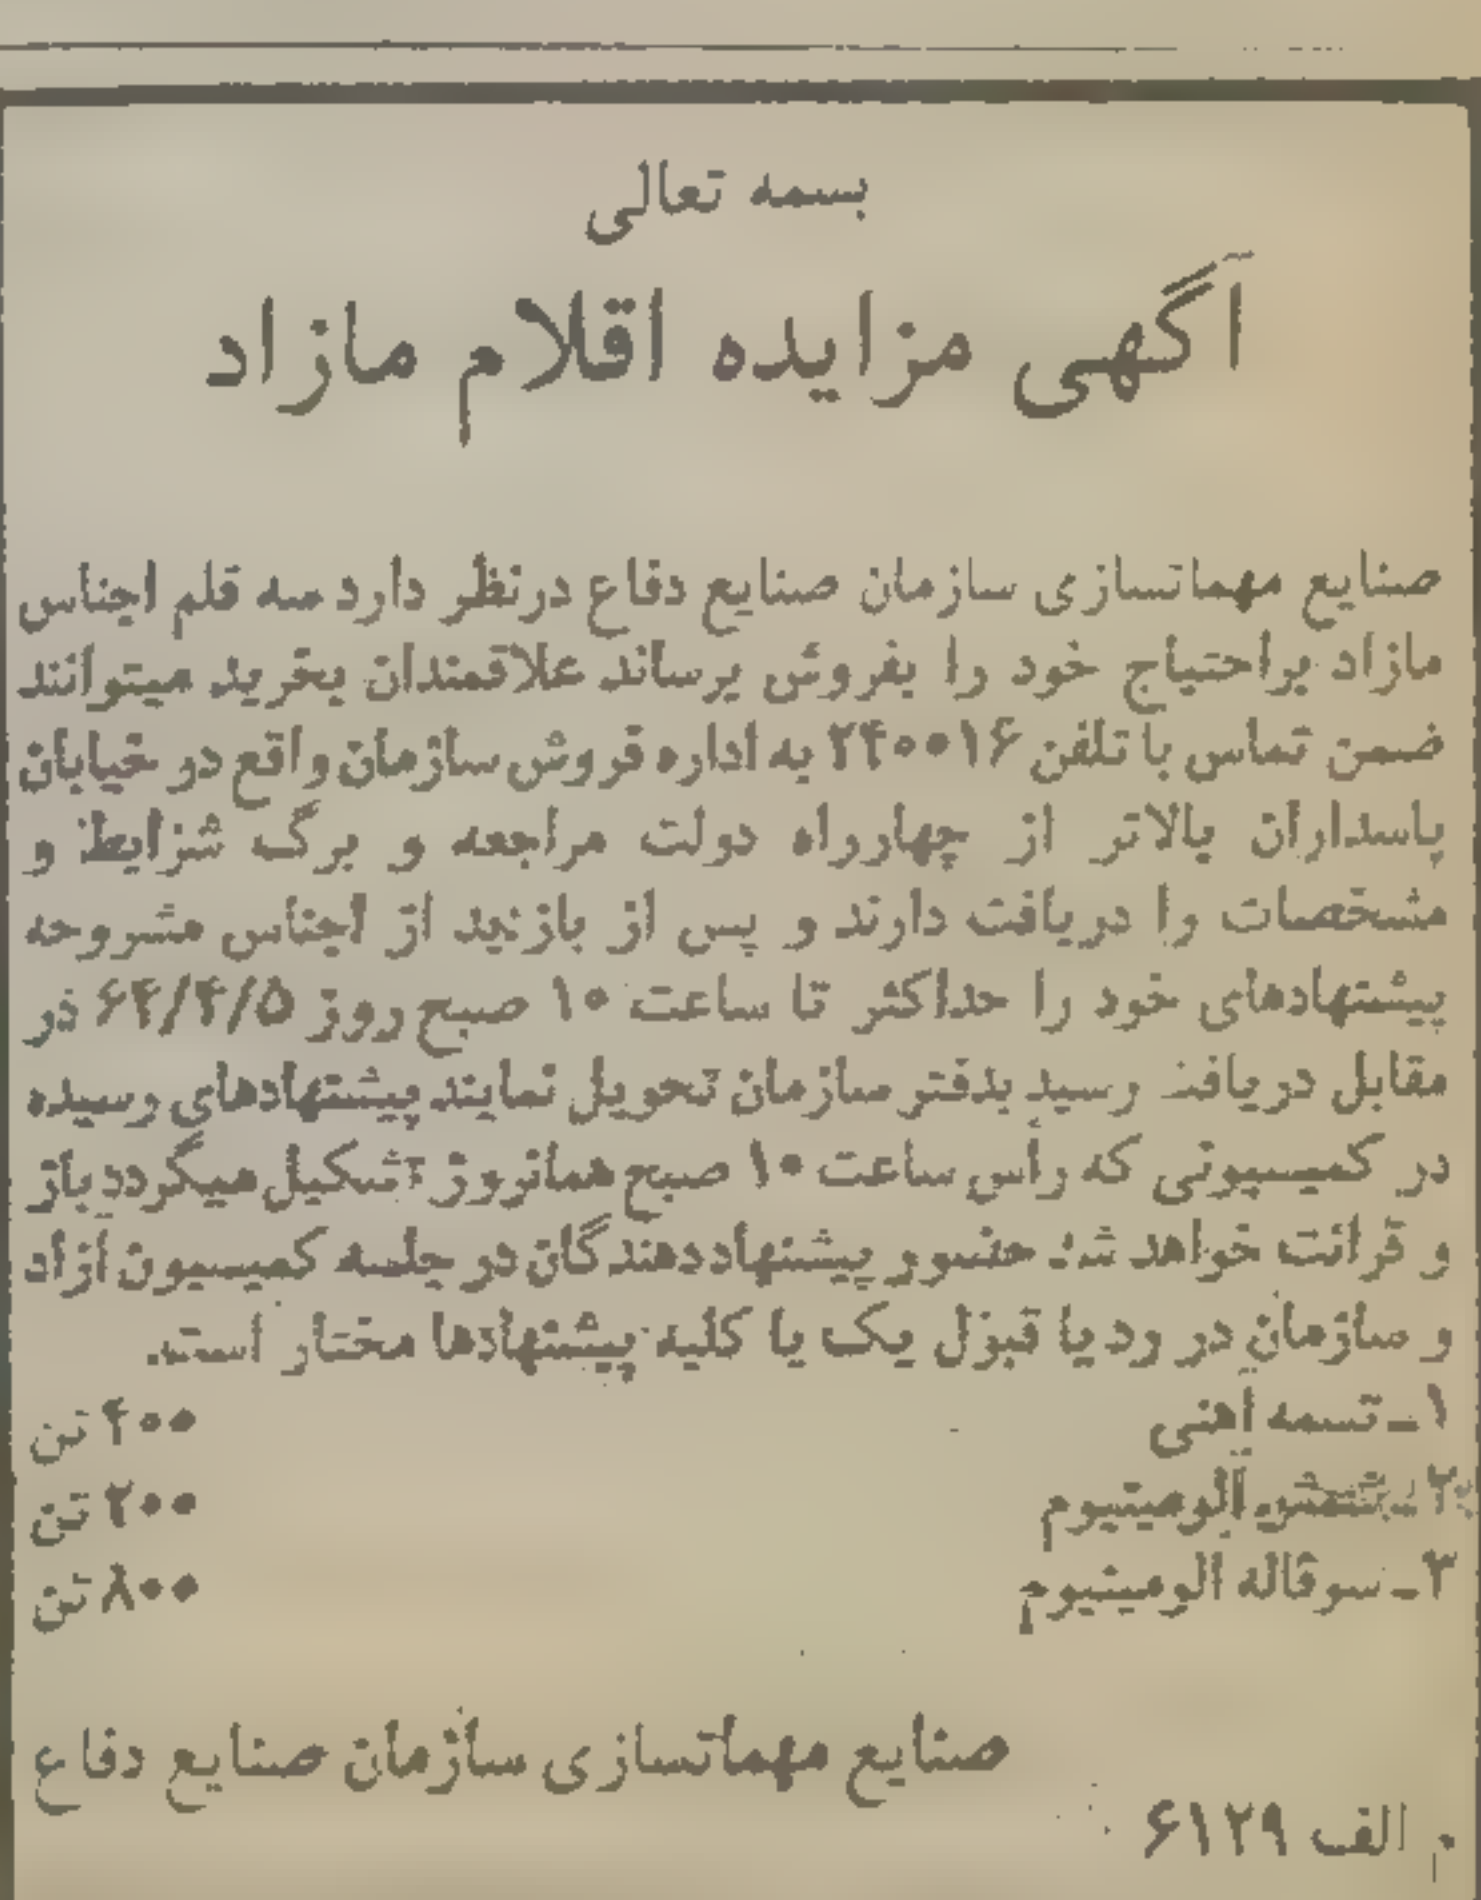 بسمه تعالی
آگهی مزایده اقلام مازاد
صنایع مهماتسازی سازمان صنایع دفاع درنظر دارد سه قلم اجناس
مازاد براحتیاج خود را بفروش برساند علاقمندان بخرید میتوانند
ضمن تماس با تلفن ۲۴۰۰۱۶ به اداره فروش سازمان واقع در خیابان
پاسداران بالاتر از چهارراه دولت مراجعه و برگ شرایط و
مشخصات را دریافت دارند و پس از بازدید از اجناس مشروحه
پیشنهادهای خود را حداکثر تا ساعت ۱۰ صبح روز ۶۴/۴/۵ در
مقابل دریافت رسید بدفتر سازمان تحویل نمایند پیشنهادهای رسیده
در کمیسیونی که رأس ساعت ۱۰ صبح همانروز تشکیل میگردد باز
و قرائت خواهد شد حضور پیشنهاددهندگان در جلسه کمیسیون آزاد
و سازمان در رد یا قبول یک یا کلیه پیشنهادها مختار است.
۱ـ تسمه آهنی ۴۰۰ تن
۲ـ آلومینیوم ۲۰۰ تن
۳ـ سوفاله الومینیوم ۸۰۰ تن
صنایع مهماتسازی سازمان صنایع دفاع
م الف ۶۱۲۹